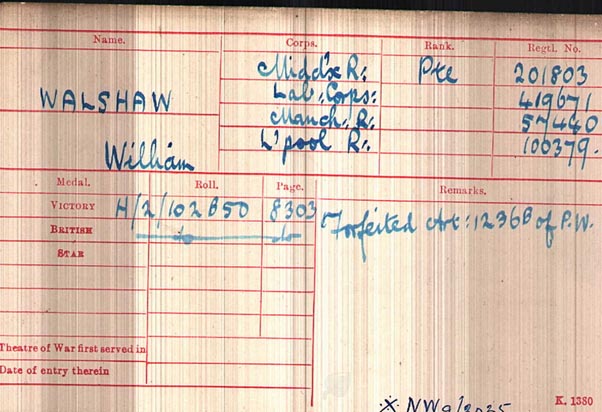 Name. Corps. Rank. Regtl. No.
Midd'x R: Pte 201803
WALSHAW Lab. Corps: 419671
Manch. R: 57440
William L'pool R: 100379.
Medal. Roll. Page. Remarks.
VICTORY H/2/102B50 8303 Forfeited Art: 1236B of P.W.
BRITISH
STAR
Theatre of War first served in
Date of entry therein
K. 1380